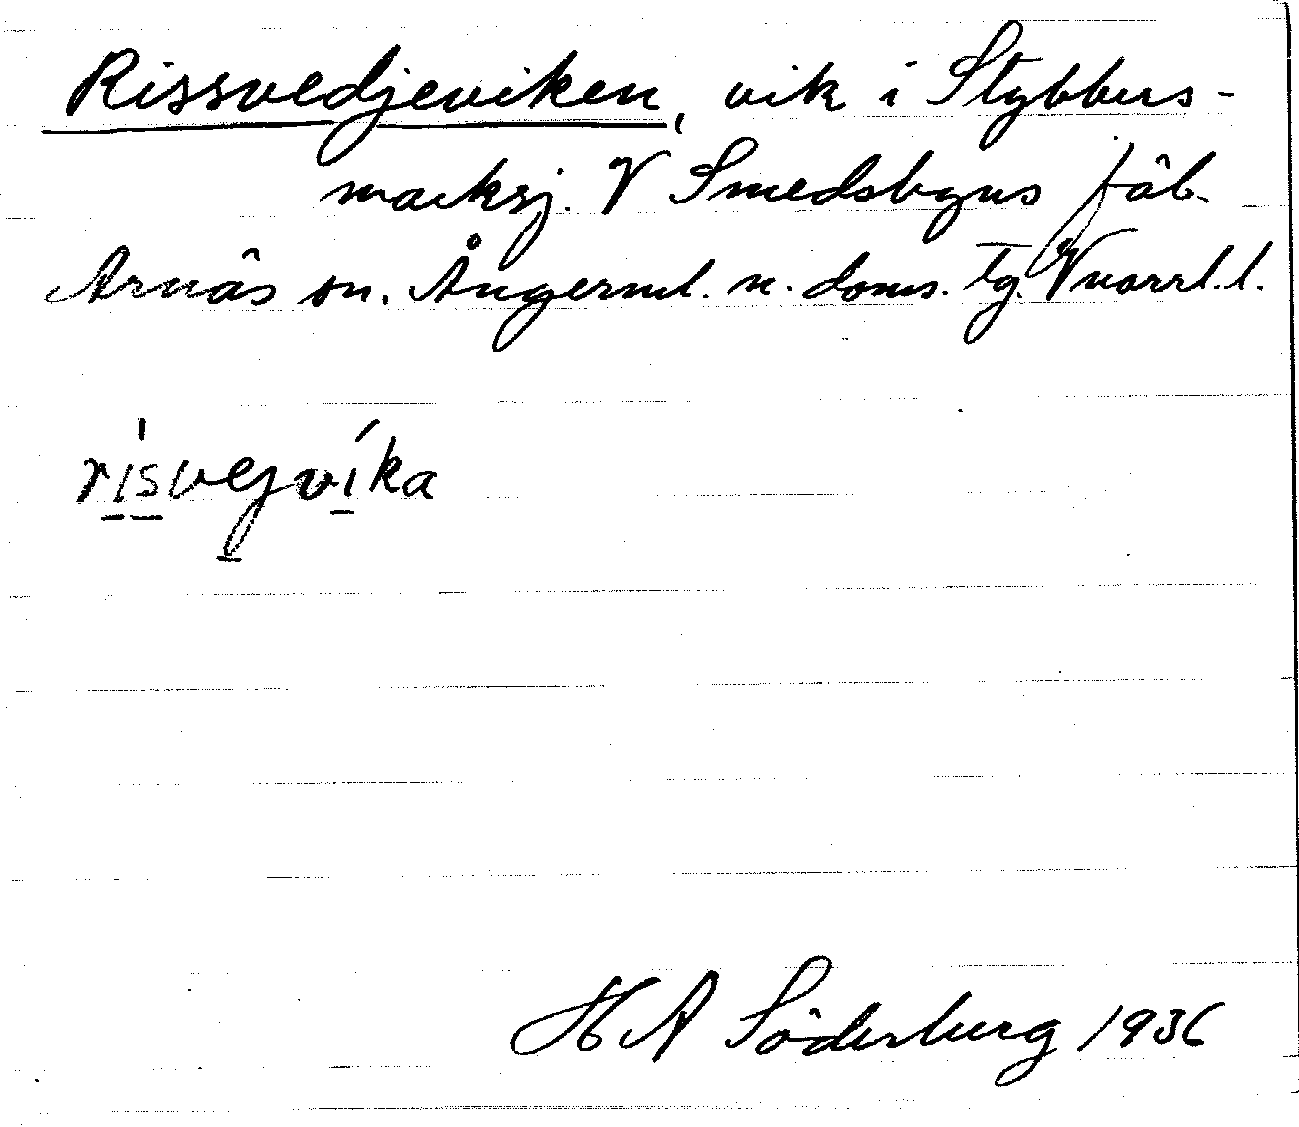 Rissvedjeviken, vik i Stybbers-
marksj. V Smedsbyns fäb.
Arnäs sn. Ångerml. n. doms. tg. Vnorrl. l.
risvejvika
H A Söderberg 1936